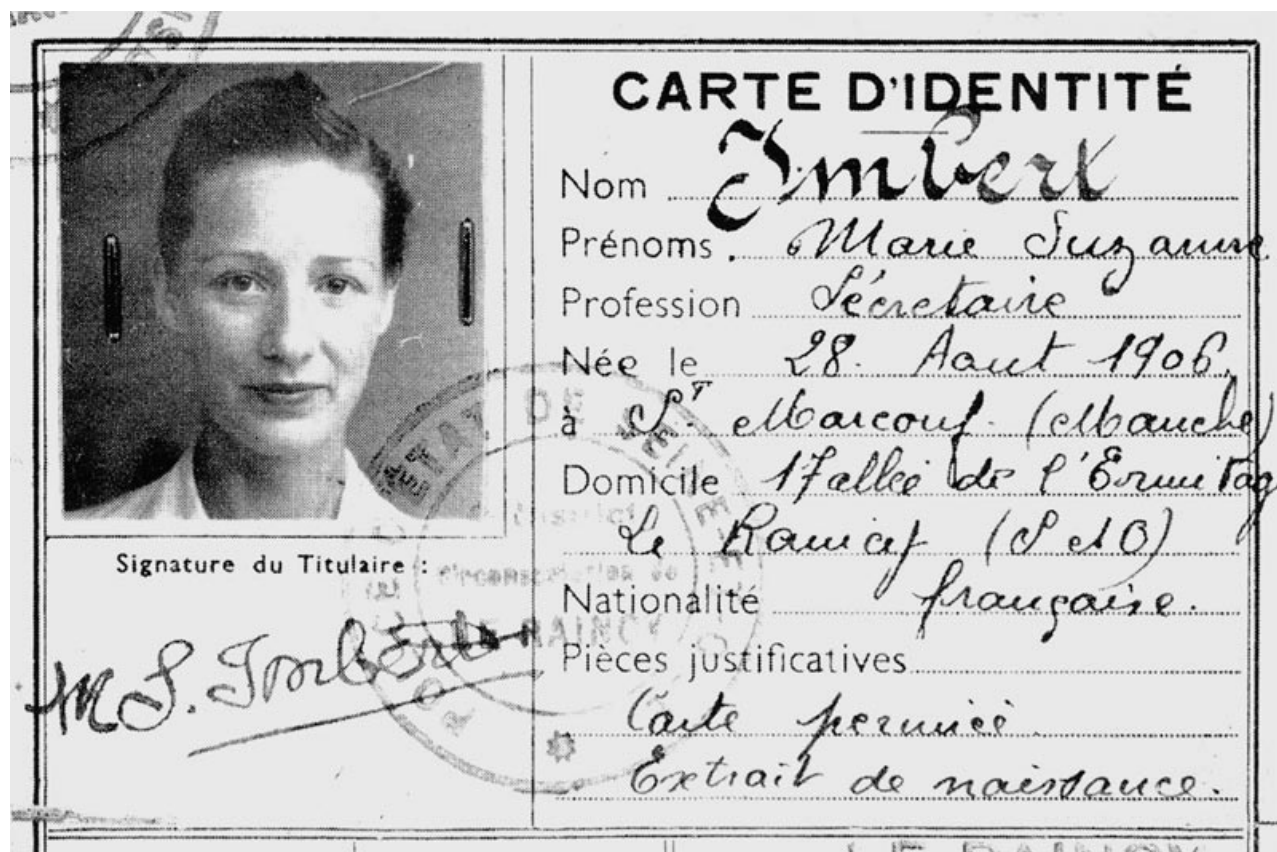 CARTE D'IDENTITÉ
Nom Imbert
Prénoms. Marie Suzanne
Profession Sécretaire
Née le 28. Aout 1906.
à St Marcouf. (Manche)
Domicile 17 allée de l'Ermitag
Le Raincy (S et O)
Nationalité française.
Pièces justificatives
Carte
Extrait de naissance.
Signature du Titulaire :
M S. Imbert
DE SEINE
Circonscription de
LE RAINCY